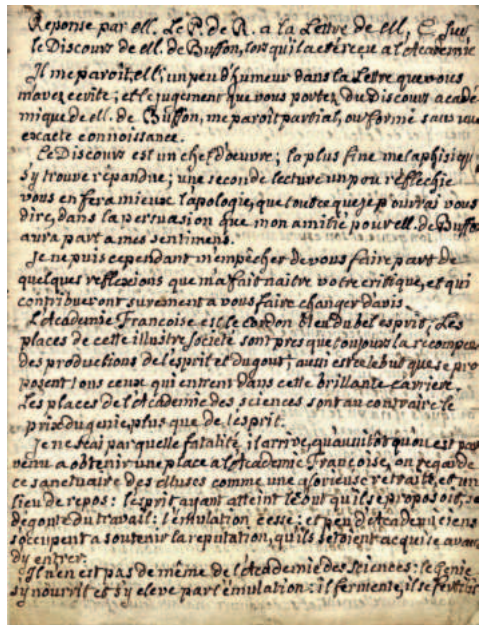 Reponse par M. Le P. de R. a la Lettre de M. C. Sur
le Discours de M. de Buffon, lors qu'il a eté reçu a l'Academie
Il me paroit, M, un peu d'humeur dans la Lettre que vous
m'avez ecrite; et le jugement que vous portez du Discours acadé
mique de M. de Buffon, me paroit partial, ou formé sans une
exacte connoissance.
Le Discours est un chef d'oeuvre; la plus fine metaphisique
s'y trouve répandue; une seconde lecture un peu réflechie
vous en fera mieux l'apologie, que tout ce que je pourrai vous
dire, dans la persuasion que mon amitié pour M. de Buffon
aura part a mes sentimens.
Je ne puis cependant m'empêcher de vous faire part de
quelques reflexions que m'a fait naitre votre critique, et qui
contribueront surement a vous faire changer d'avis.
L'Academie Francoise est le cordon bleu du bel esprit; Les
places de cette illustre societé sont presque toujours la recompense
des productions de l'esprit et du gout; aussi est ce le but que se pro
posent tous ceux qui entrent dans cette brillante carriere.
Les places de l'Academie des sciences sont au contraire le
prix du genie, plus que de l'esprit.
Je ne scai par quelle fatalité, il arrive, qu'aussitôt qu'on est par
venu a obtenir une place a l'Academie Françoise, on regarde
ce sanctuaire des Muses comme une glorieuse retraite, et un
lieu de repos: l'esprit ayant atteint le but qu'il se proposoit, se
degoute du travail: l'émulation cesse: et peu d'Academiciens
s'occupent a soutenir la reputation, qu'ils s'etoient acquise avant
d'y entrer.
Il n'en est pas de même de l'Academie des sciences: le genie
s'y nourrit et s'y eleve par l'émulation: il fermente, il se fertilise